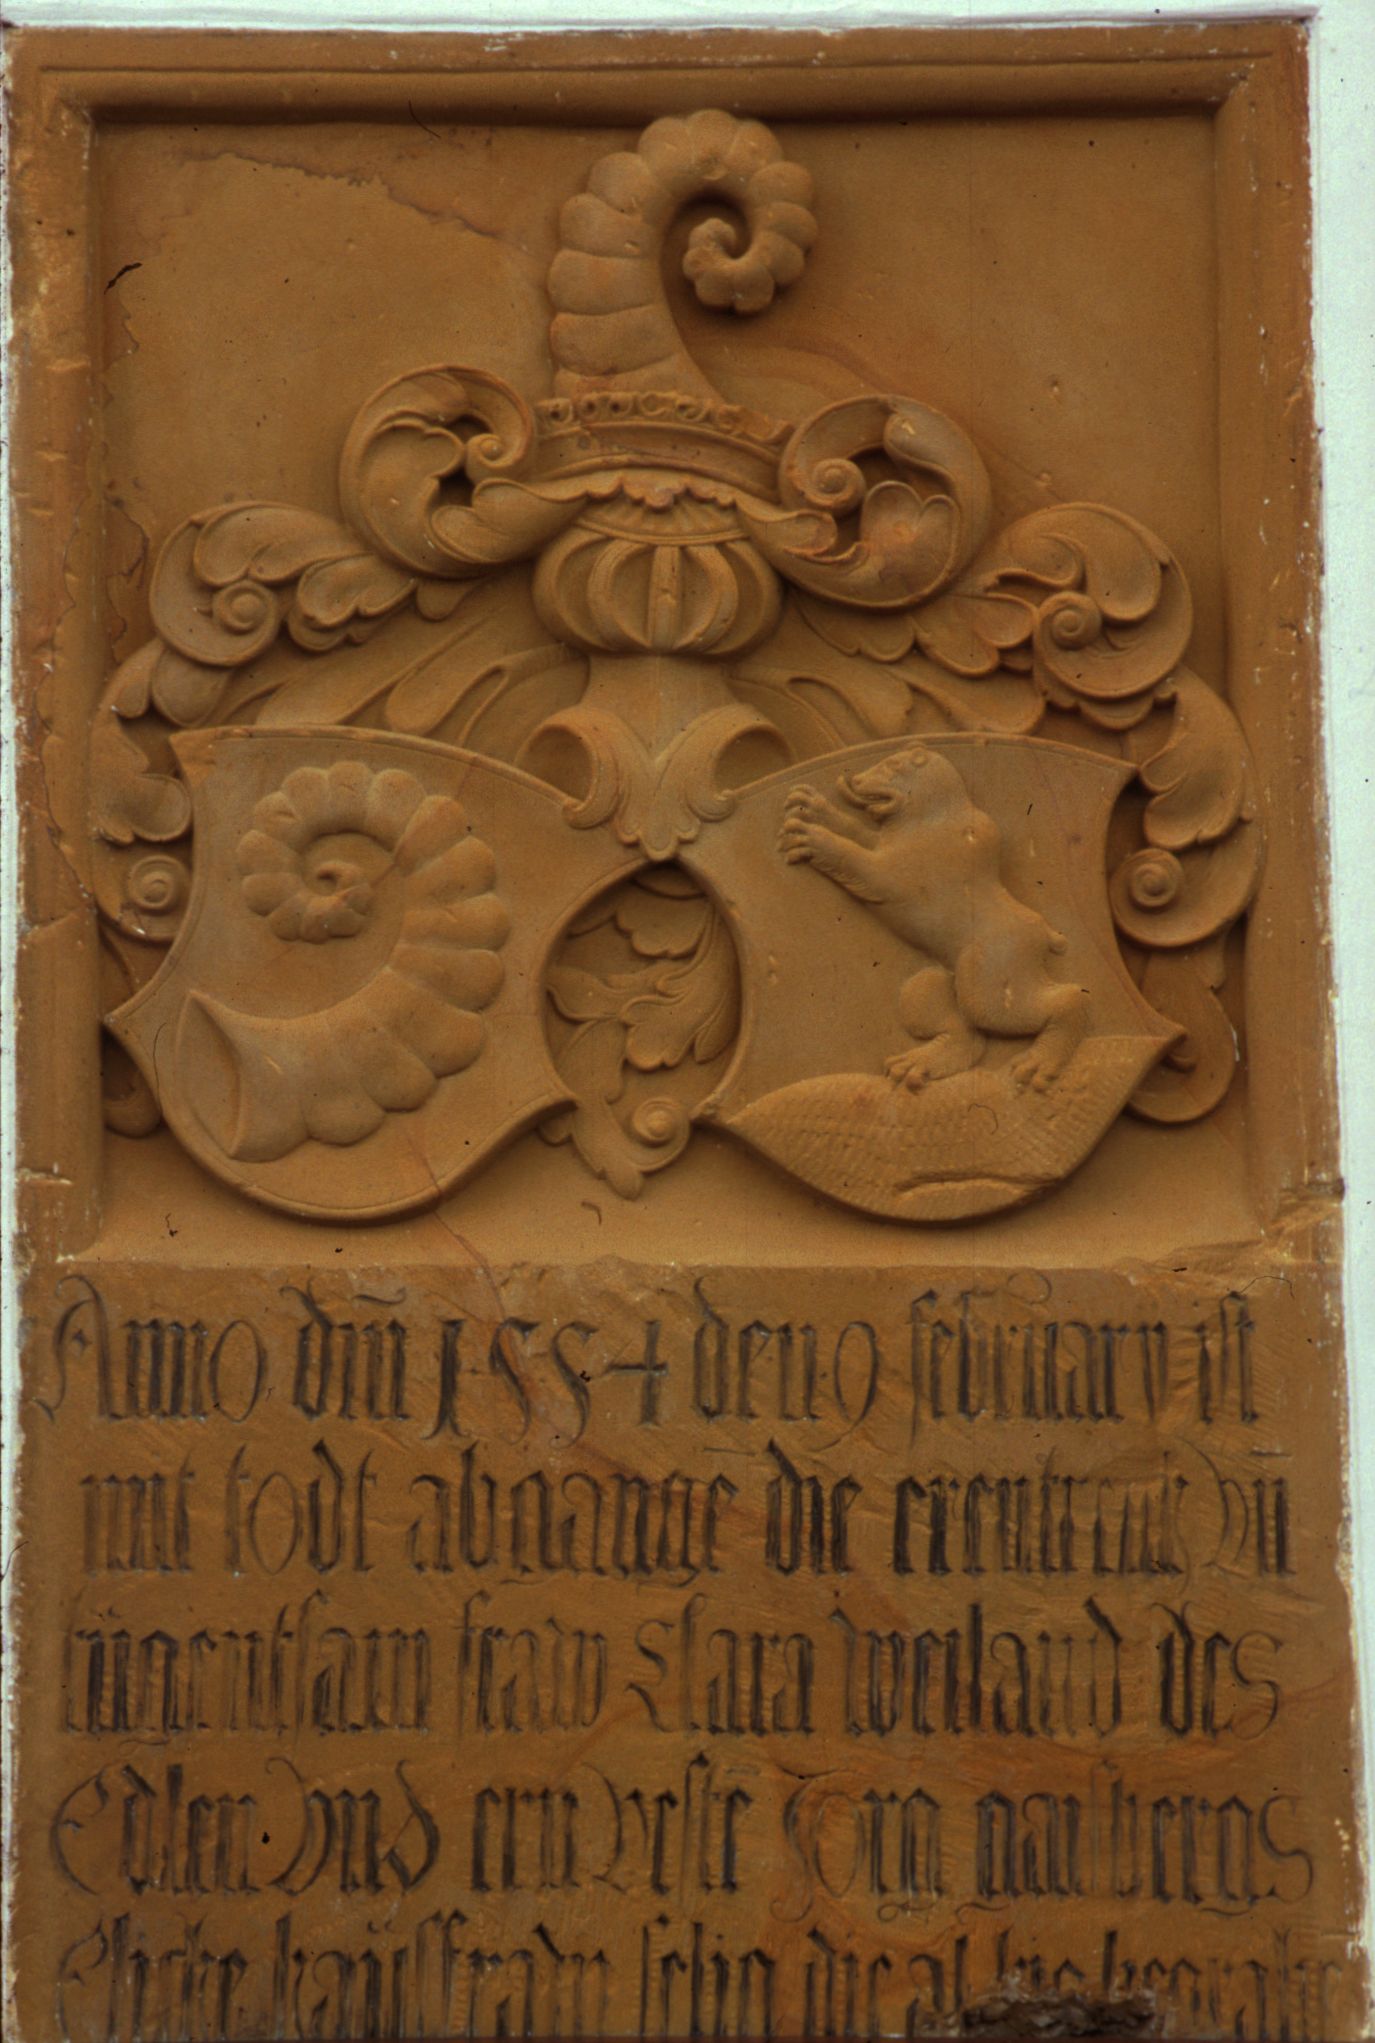 Anno dm̄ 1554 den 9 februarÿ ist
mit todt abgange die erentreich vn̄
tügentsam fraw Clara weiland des
Edlen vnd ern veste Jorg gaisbergs
Eliche haüsfraw selig die al hie begrabe